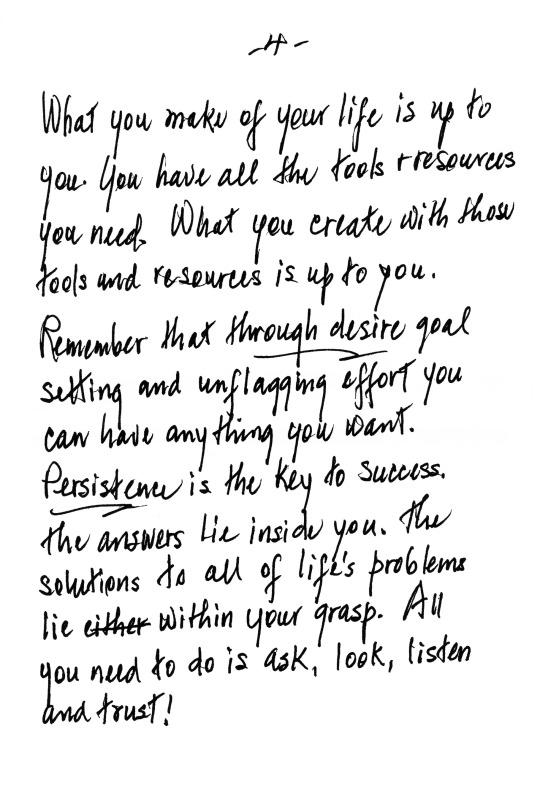 -4-
What you make of your life is up to
you. You have all the tools + resources
you need. What you create with those
tools and resources is up to you.
Remember that through desire goal
setting and unflagging effort you
can have anything you want.
Persistence is the key to success.
The answers lie inside you. The
solutions to all of life's problems
lie either within your grasp. All
you need to do is ask, look, listen
and trust!